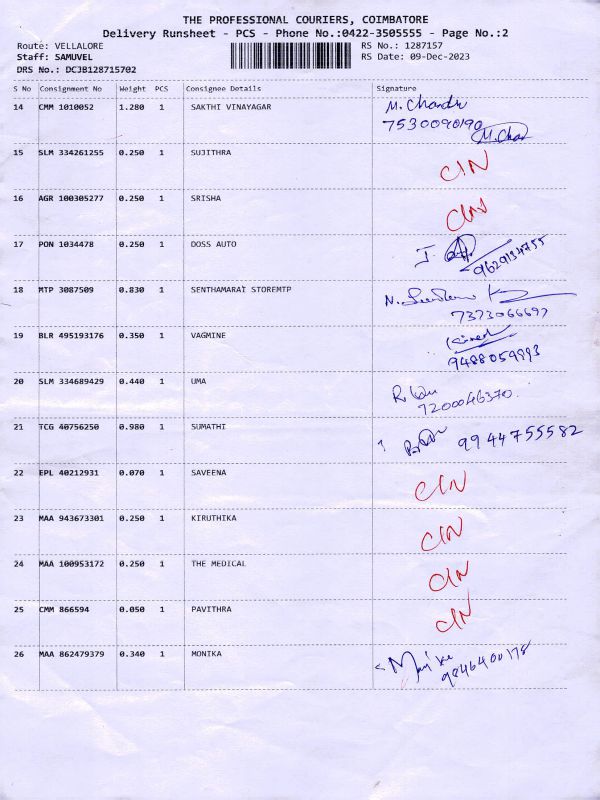 THE PROFESSIONAL COURIERS, COIMBATORE
Delivery Runsheet - PCS - Phone No.:0422-3505555 - Page No.:2
Route: VELLALORE RS No.: 1287157
Staff: SAMUVEL RS Date: 09-Dec-2023
DRS No.: DCJB128715702
S No Consignment No Weight PCS Consignee Details Signature
14 CMM 1010052 1.280 1 SAKTHI VINAYAGAR M. Chandru
7530090190
M. Chan
15 SLM 334261255 0.250 1 SUJITHRA C/N
16 AGR 100305277 0.250 1 SRISHA C/N
17 PON 1034478 0.250 1 DOSS AUTO J.
9629134755
18 MTP 3087509 0.830 1 SENTHAMARAI STOREMTP N.
7373066697
19 BLR 495193176 0.350 1 VAGMINE
9488059993
20 SLM 334689429 0.440 1 UMA R.
7200046370.
21 TCG 40756250 0.980 1 SUMATHI 9944755582
22 EPL 40212931 0.070 1 SAVEENA C/N
23 MAA 943673301 0.250 1 KIRUTHIKA C/N
24 MAA 100953172 0.250 1 THE MEDICAL C/N
25 CMM 866594 0.050 1 PAVITHRA C/N
26 MAA 862479379 0.340 1 MONIKA
9846400178